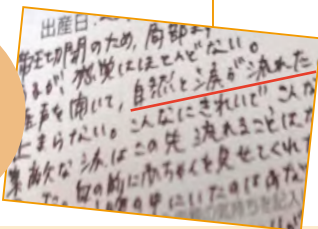 出産日:
帝王切開のため、局部ま
るが、感覚はほとんどない。
産声を聞いて、自然と涙が流れた
止まらない。こんなにきれいで、こんな
素敵な涙はこの先流れることは
目の前に赤ちゃんを見せてくれ
の中にいたのはあな
気持ちを記入